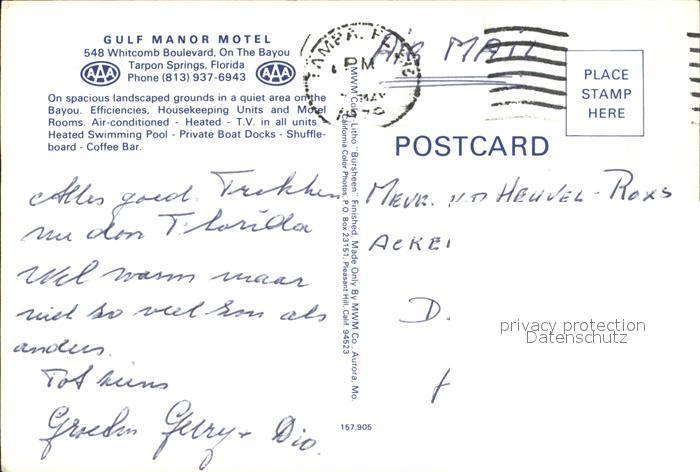 GULF MANOR MOTEL
548 Whitcomb Boulevard, On The Bayou
AAA Tarpon Springs, Florida AAA
Phone (813) 937-6943
On spacious landscaped grounds in a quiet area on the
Bayou. Efficiencies, Housekeeping Units and Motel
Rooms. Air-conditioned - Heated - T.V. in all units
Heated Swimming Pool - Private Boat Docks - Shuffle-
board - Coffee Bar.
Alles goed. Trekken
nu door Florida
Wel warm maar
niet zo veel zon als
anders.
Tot ziens
Groeten Gerry + Dio.
MWM Color Litho "Bursheen" Finished, Made Only By MWM Co., Aurora, Mo.
California Color Photos, P.O. Box 23151, Pleasant Hill, Calif. 94523
157,905
TAMPA, FL
PM
MAY
AIR MAIL
PLACE
STAMP
HERE
POSTCARD
MEVR. V.D HEUVEL - ROXS
ACKE
D.
privacy protection
Datenschutz